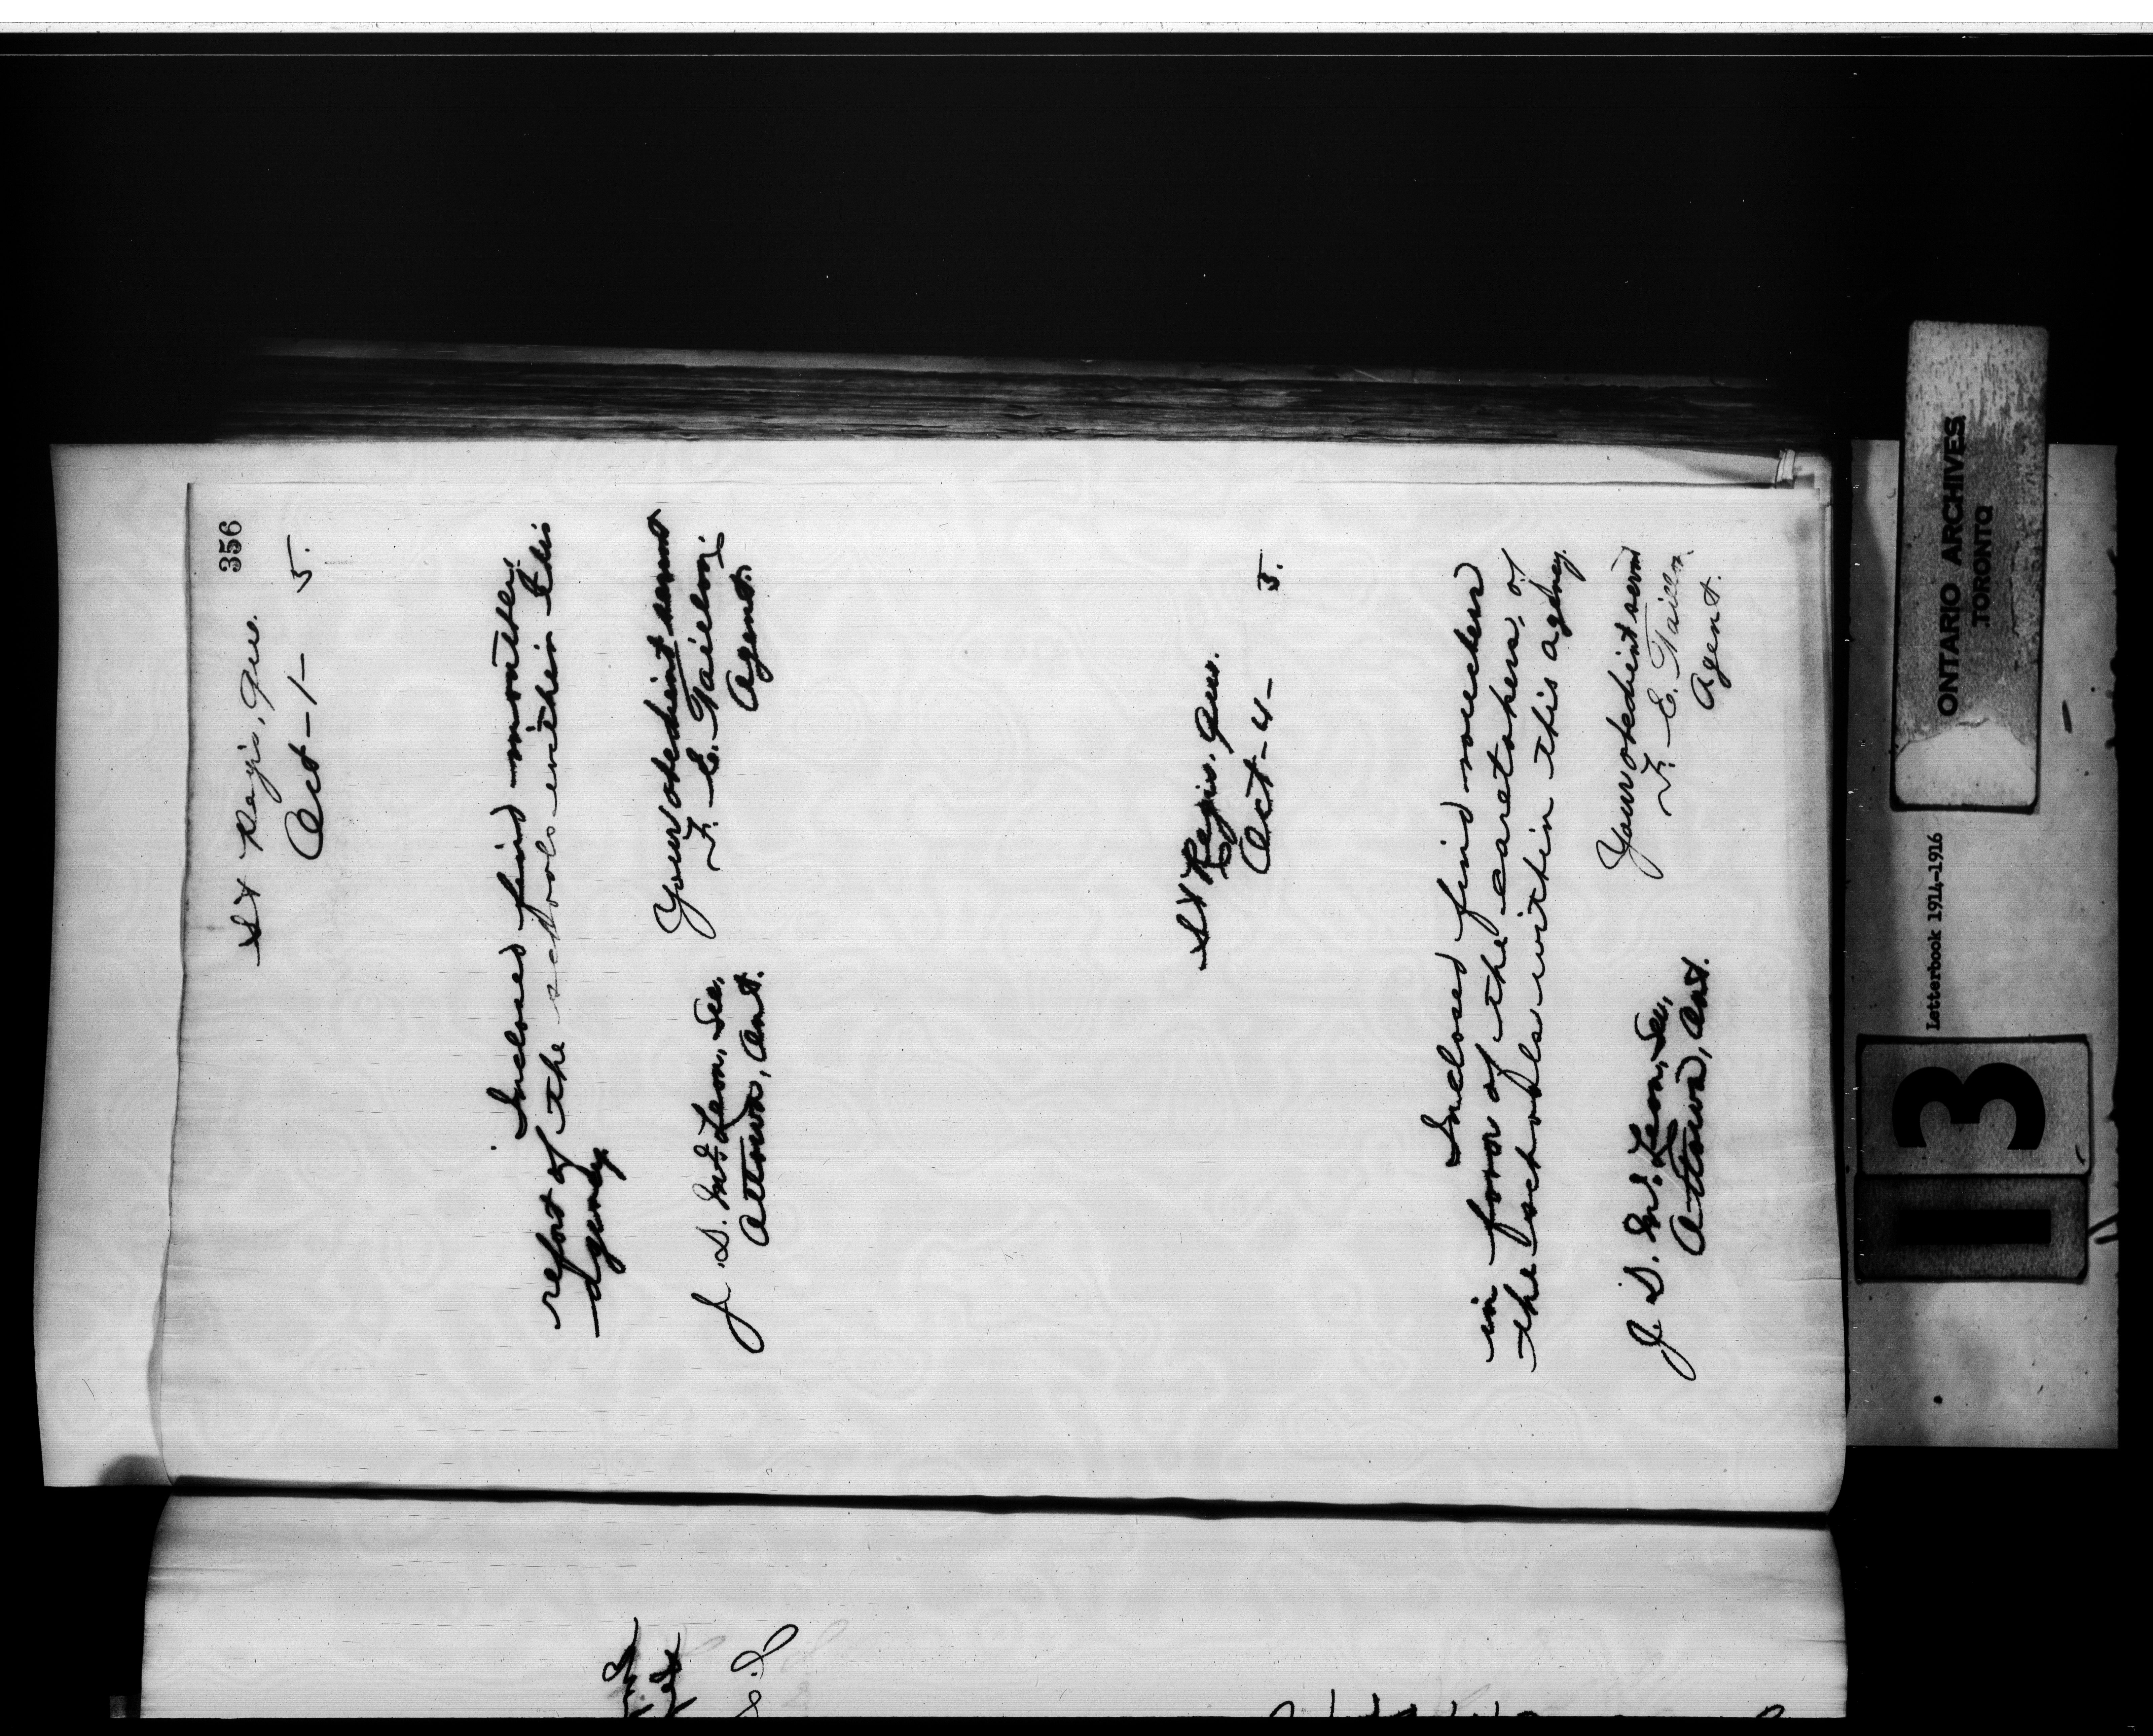 356
St Regis, Que.
Oct-1- 5.
Inclosed find monthly
report of the schools within this
agency.
Your obedient servant
F. E. Taillon,
Agent.
J. D. McLean, Sec,
Ottawa, Ont.
St Regis, Que.
Oct-4- 5.
Inclosed find vouchers
in favor of the caretakers, of
the schools within this agency.
Your obedient servant
F. E. Taillon.
Agent.
J. D. McLean, Sec,
Ottawa, Ont.
ONTARIO ARCHIVES
TORONTO
Letterbook 1914-1916
13